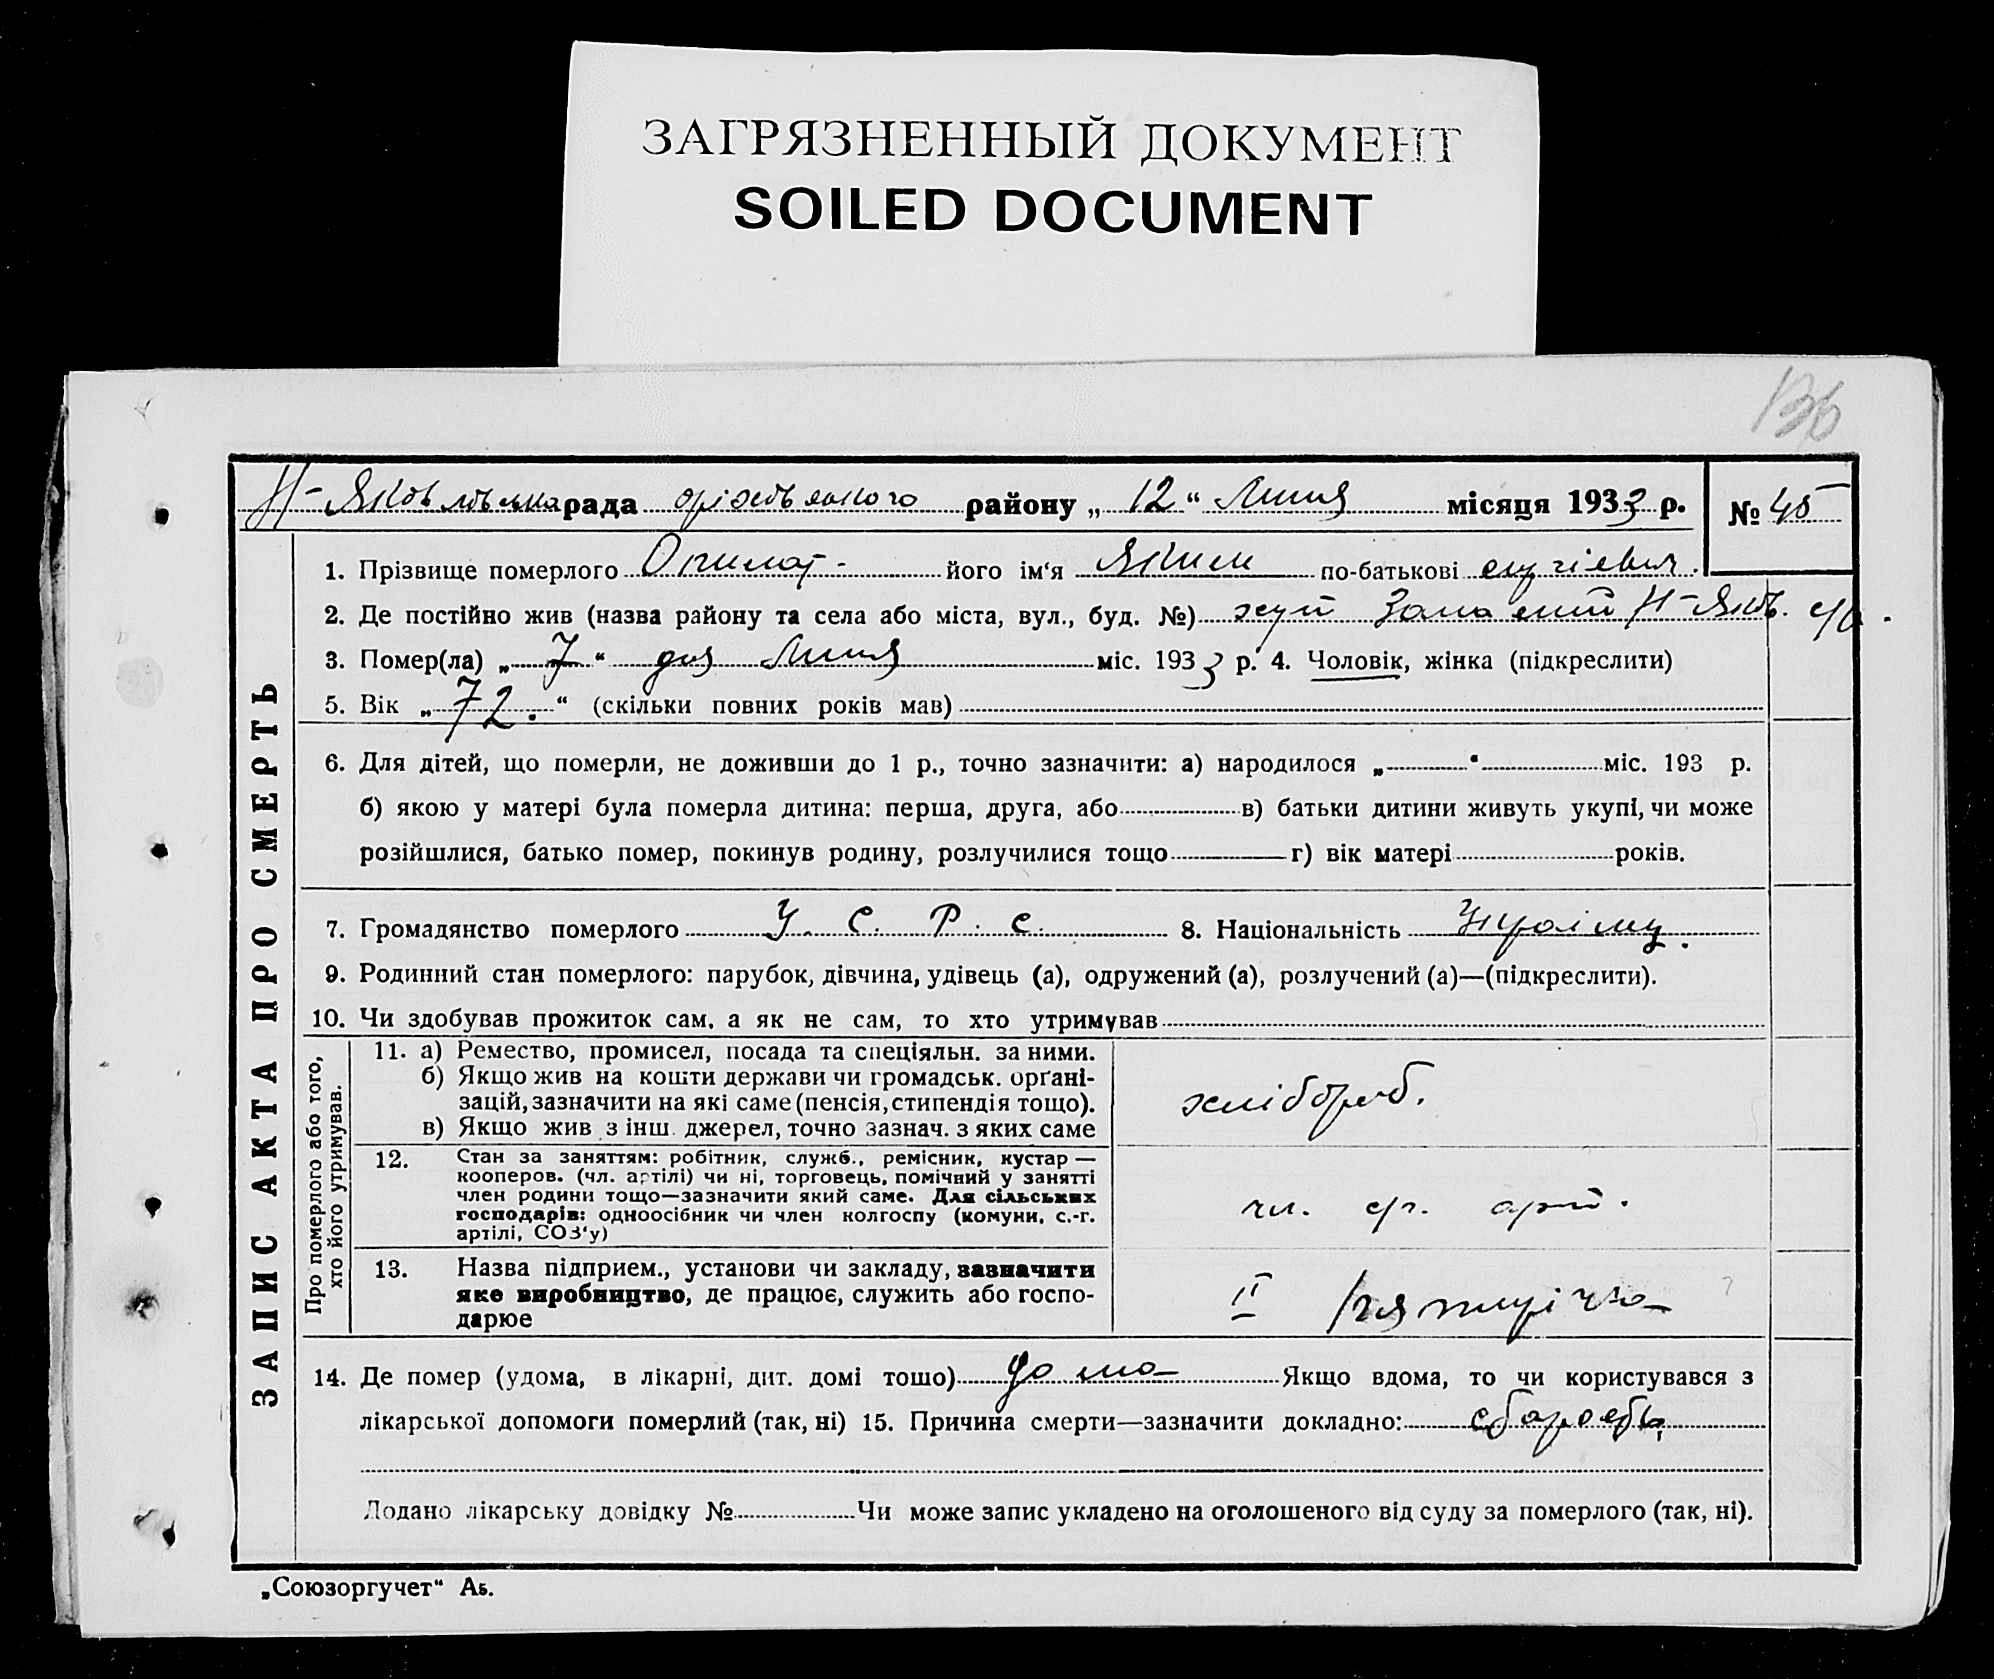 ЗАГРЯЗНЕННЫЙ ДОКУМЕНТ
SOILED DOCUMENT
136
Н-Яковлівська рада оріхівського району „ 12 “ Липня місяця 1933 р. № 45
1. Прізвище померлого його ім‘я Яким по-батькові
2. Де постійно жив (назва району та села або міста, вул., буд. №) хут Н-Яков. с/р.
3. Помер(ла) „ 7 “ дня Липня міс. 1933 р. 4. Чоловік, жінка (підкреслити)
5. Вік „ 72. “ (скільки повних років мав)
6. Для дітей, що померли, не доживши до 1 р., точно зазначити: а) народилося „ “ міс. 193 р.
б) якою у матері була померла дитина: перша, друга, або в) батьки дитини живуть укупі, чи може
розійшлися, батько помер, покинув родину, розлучилися тощо г) вік матері років.
7. Громадянство померлого У. С. Р. С. 8. Національність Україн.
9. Родинний стан померлого: парубок, дівчина, удівець (а), одружений (а), розлучений (а)—(підкреслити).
10. Чи здобував прожиток сам, а як не сам, то хто утримував
Про померлого або того,
хто його утримував.
11. а) Ремество, промисел, посада та спеціяльн. за ними.
б) Якщо жив на кошти держави чи громадськ. орґані-
зацій, зазначити на які саме (пенсія, стипендія тощо).
в) Якщо жив з інш. джерел, точно зазнач. з яких саме
хлібороб.
12. Стан за заняттям: робітник, служб., ремісник, кустар —
кооперов. (чл. артілі) чи ні, торговець, помічний у занятті
член родини тощо—зазначити який саме. Для сільських
господарів: одноосібник чи член колгоспу (комуни, с.-г.
артілі, СОЗ‘у)
чл. с/г. арт.
13. Назва підприєм., установи чи закладу, зазначити
яке виробництво, де працює, служить або госпо-
дарює
II П'ятирічка
14. Де помер (удома, в лікарні, дит. домі тощо) дома Якщо вдома, то чи користувався з
лікарської допомоги померлий (так, ні) 15. Причина смерти—зазначити докладно:
Додано лікарську довідку № Чи може запис укладено на оголошеного від суду за померлого (так, ні).
ЗАПИС АКТА ПРО СМЕРТЬ
„Союзоргучет“ А5.